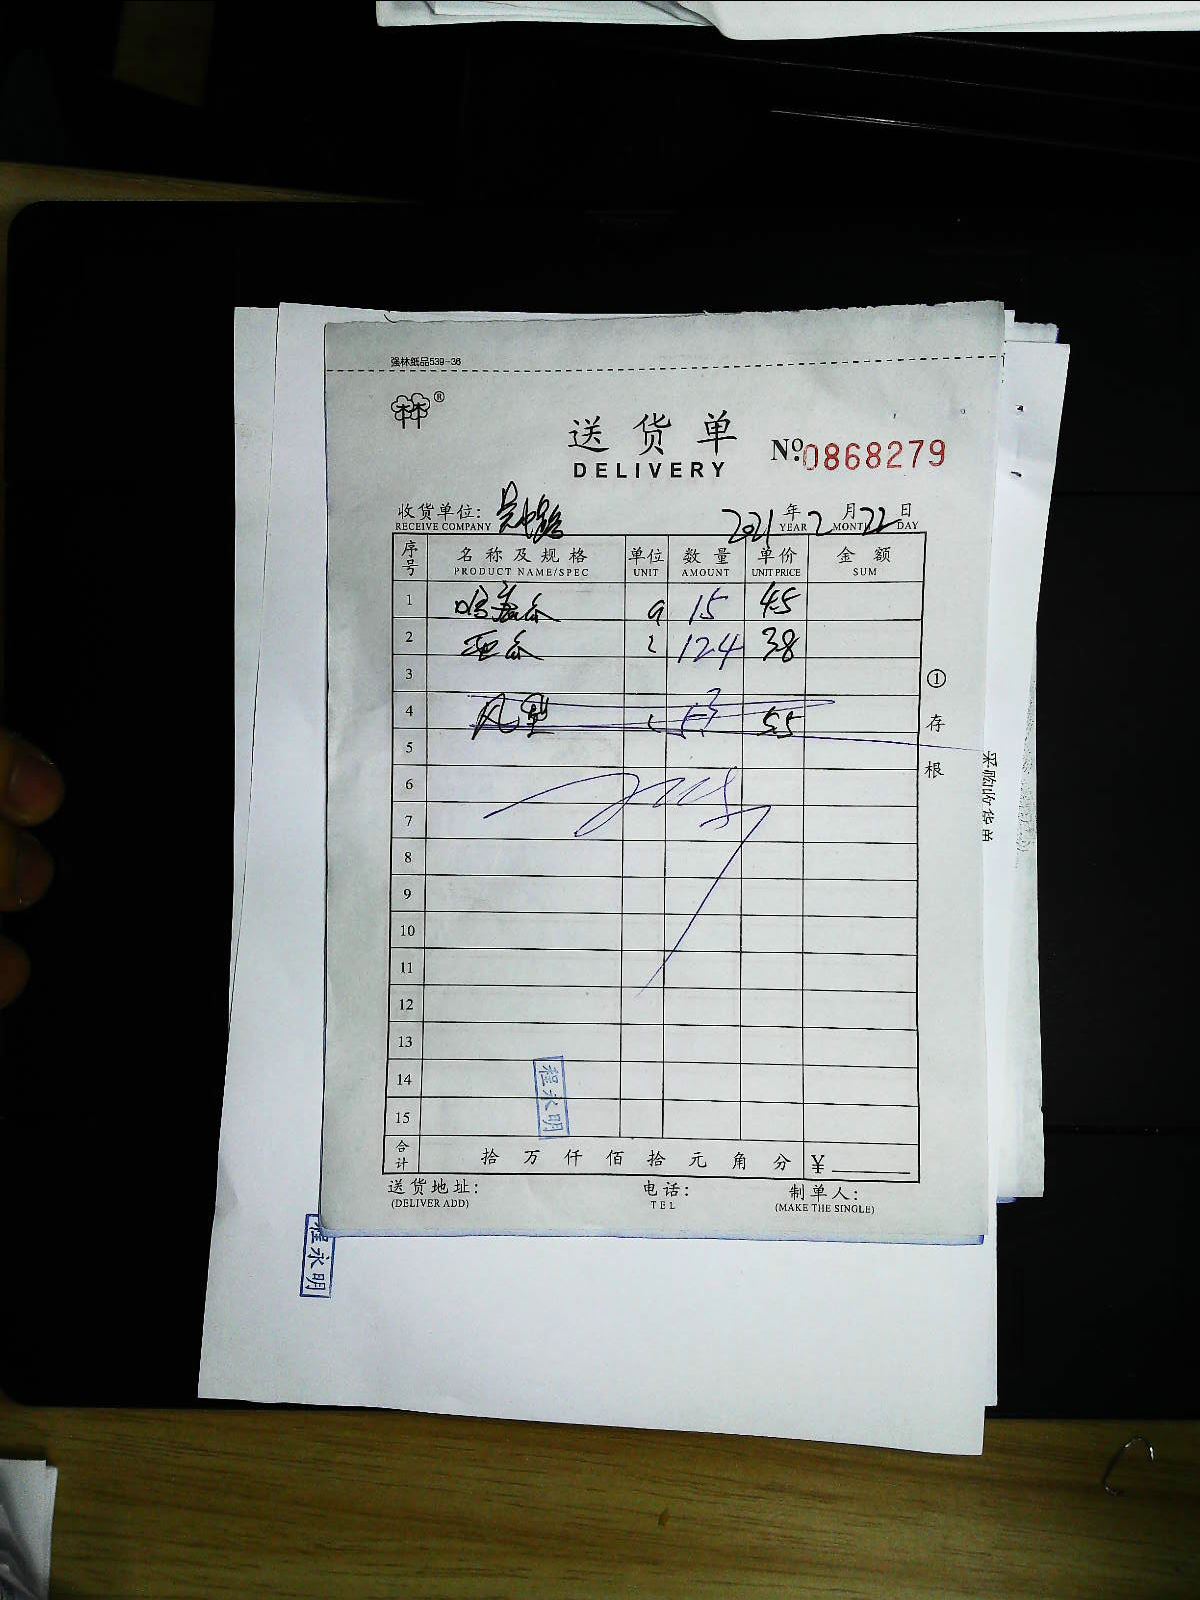 强林纸品539-36
林林®
送货单
DELIVERY
№0868279
收货单位:
RECEIVE COMPANY
2021年2月22日
YEAR MONTH DAY
序号 名称及规格 单位 数量 单价 金额
PRODUCT NAME/SPEC UNIT AMOUNT UNIT PRICE SUM
1 哈密瓜 15 45
2 西瓜 124 38
3
4 凤梨 55
5
6
7
8
9
10
11
12
13
14
15
程永明
合计 拾万仟佰拾元角分 ¥
送货地址: 电话: 制单人:
(DELIVER ADD) TEL (MAKE THE SINGLE)
①存根
采购收货单
程永明